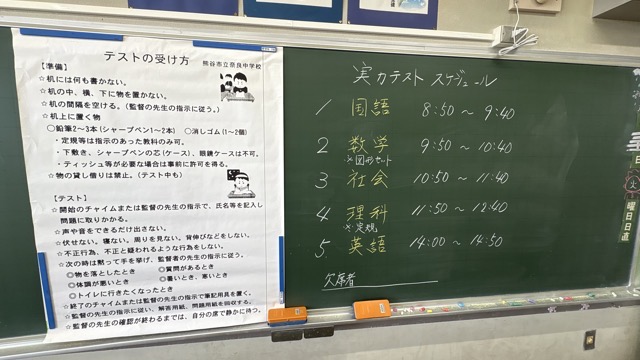 テストの受け方
熊谷市立奈良中学校
【準備】
☆机には何も書かない。
☆机の中、横、下に物を置かない。
☆机の間隔を空ける。(監督の先生の指示に従う。)
☆机上に置く物
〇鉛筆2~3本(シャープペン1~2本) 〇消しゴム(1~2個)
・定規等は指示のあった教科のみ可。
・下敷き、シャープペンの芯(ケース)、眼鏡ケースは不可。
・ティッシュ等が必要な場合は事前に許可を得る。
☆物の貸し借りは禁止。(テスト中も)
【テスト】
☆開始のチャイムまたは監督の先生の指示で、氏名等を記入し
問題に取りかかる。
☆声や音をできるだけ出さない。
☆伏せない。寝ない。周りを見ない。背伸びなどをしない。
☆不正行為、不正と疑われるような行為をしない。
☆次の時は黙って手を挙げ、監督者の先生の指示に従う。
◎物を落としたとき ◎質問があるとき
◎体調が悪いとき ◎暑いとき、寒いとき
◎トイレに行きたくなったとき
☆終了のチャイムまたは監督の先生の指示で筆記用具を置く。
☆監督の先生の指示に従い、解答用紙、問題用紙を回収する。
☆監督の先生の確認が終わるまでは、自分の席で静かに待つ。
実力テスト スケジュール
1 国語 8:50 ~ 9:40
2 数学 9:50 ~ 10:40
※図形セット
3 社会 10:50 ~ 11:40
4 理科 11:50 ~ 12:40
※定規
5. 英語 14:00 ~ 14:50
欠席者
日
曜
日
日直